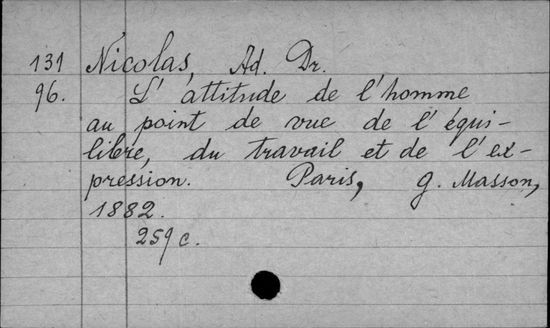 131 Nicolas, Ad. Dr.
96. L'attitude de l'homme
au point de vue de l'équi-
libre, du travail et de l'ex-
pression. Paris, G. Masson,
1882.
259 c.